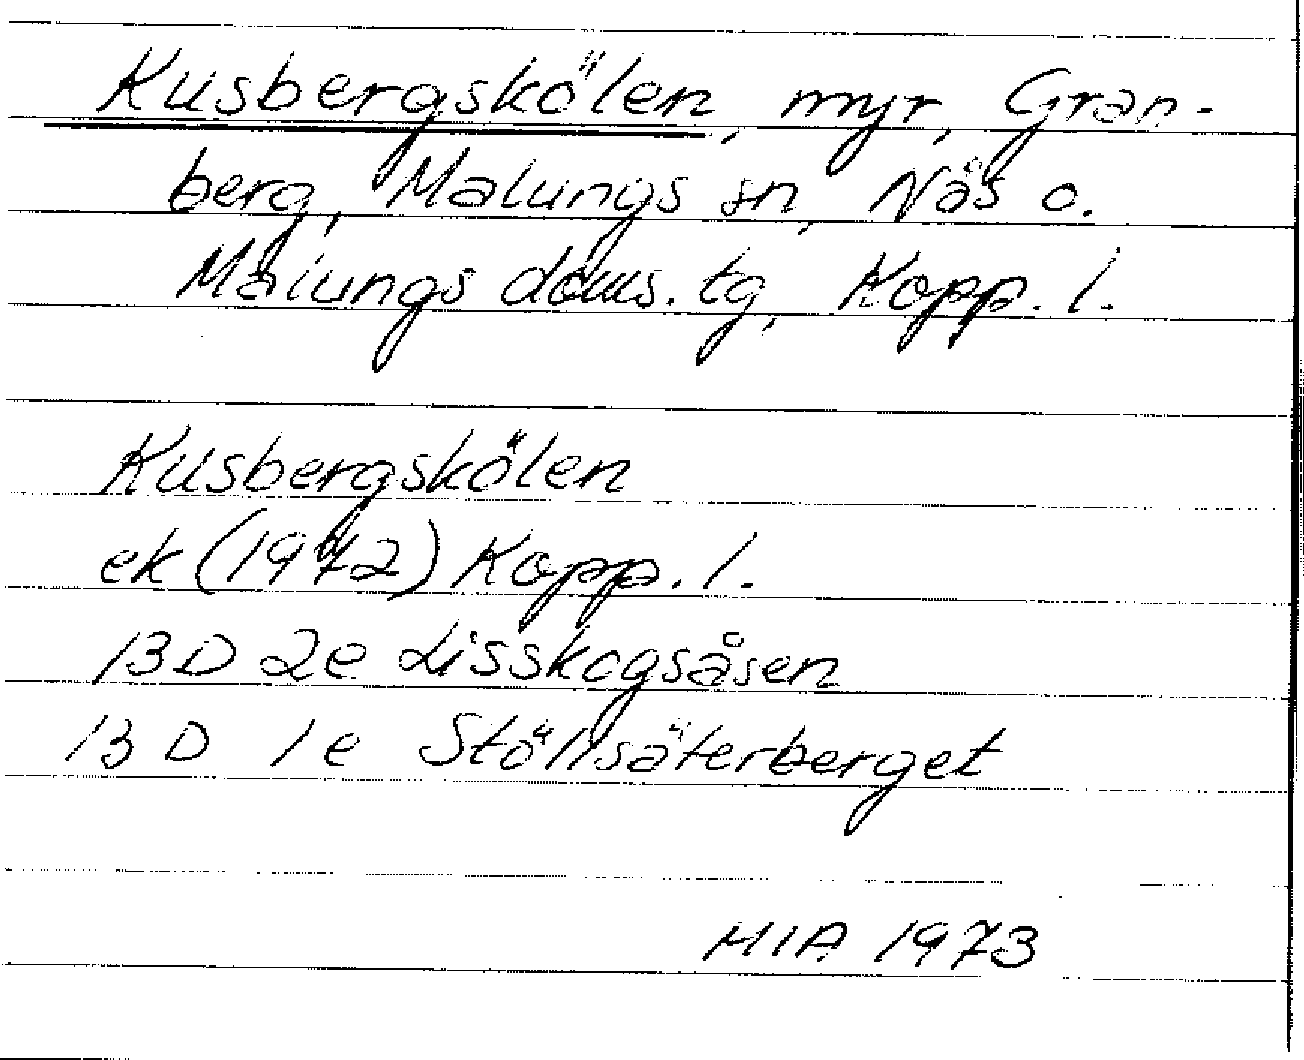 Kusbergskölen, myr, Gran-
berg, Malungs sn, Näs o.
Malungs doms. tg, Kopp. l.
Kusbergskölen
ek (1972) Kopp. l.
13D 2e Lisskogsåsen
13 D 1e Stöllsäterberget
MIA 1973